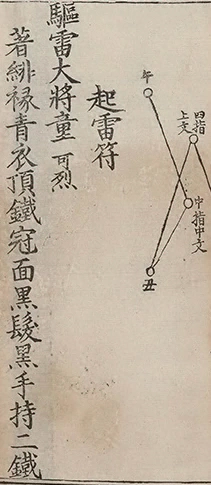 午
四指
上文
中指中文
丑
起雷符
驅雷大將童可烈
著緋褖青衣頂鐵冠面黑髮黑手持二鐵